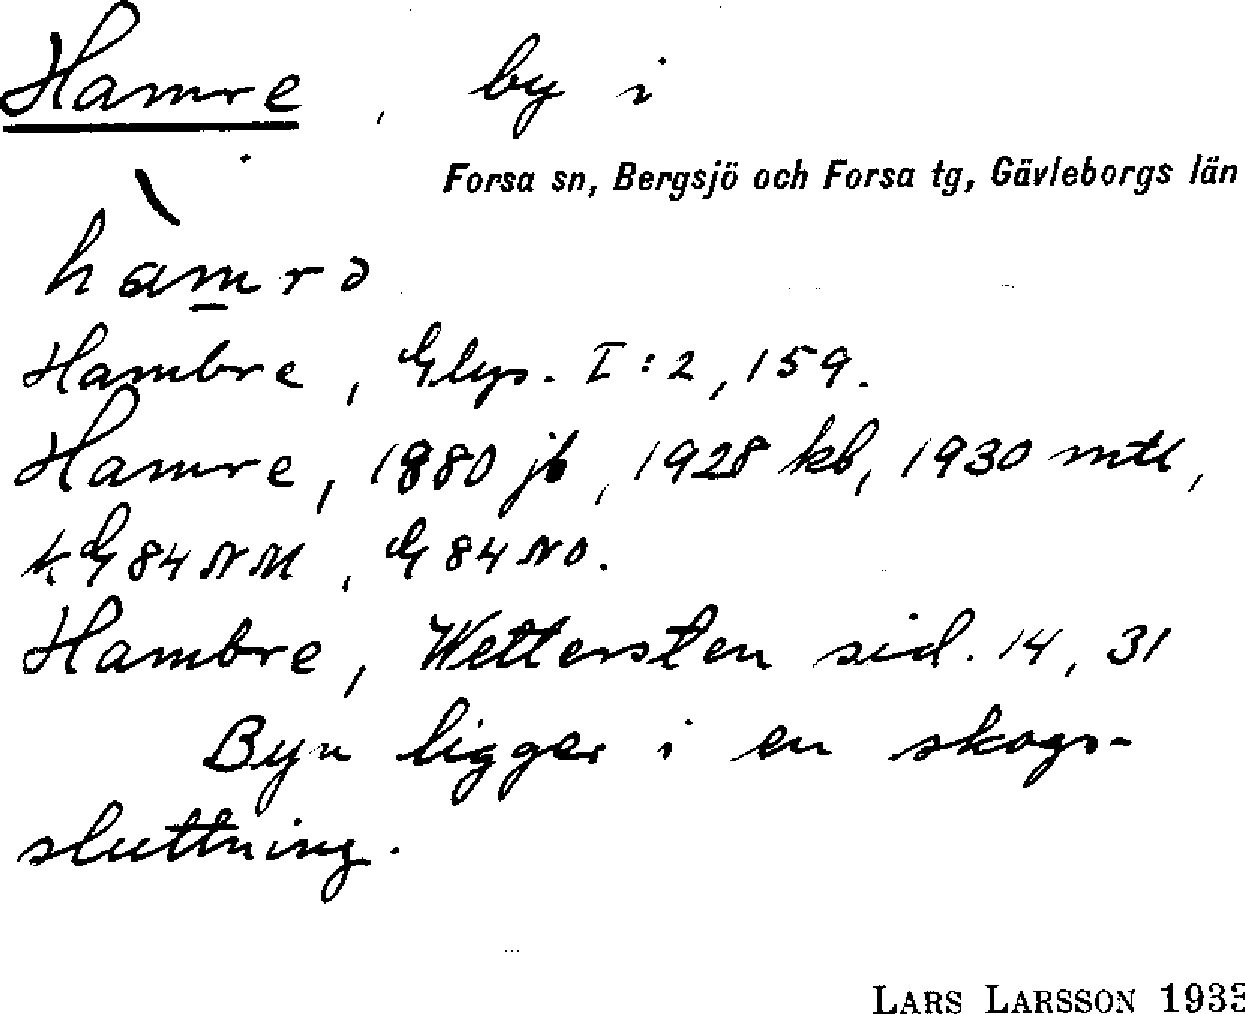 Hamre, by i
Forsa sn, Bergsjö och Forsa tg, Gävleborgs län
hàm̲rə
Hambre, Glys. I:2, 159.
Hamre, 1880 jb, 1928 kb, 1930 mtl,
k, G 84 NM, G 84 NO.
Hambre, Wettersten sid. 14, 31
Byn ligger i en skogs-
sluttning.
LARS LARSSON 193